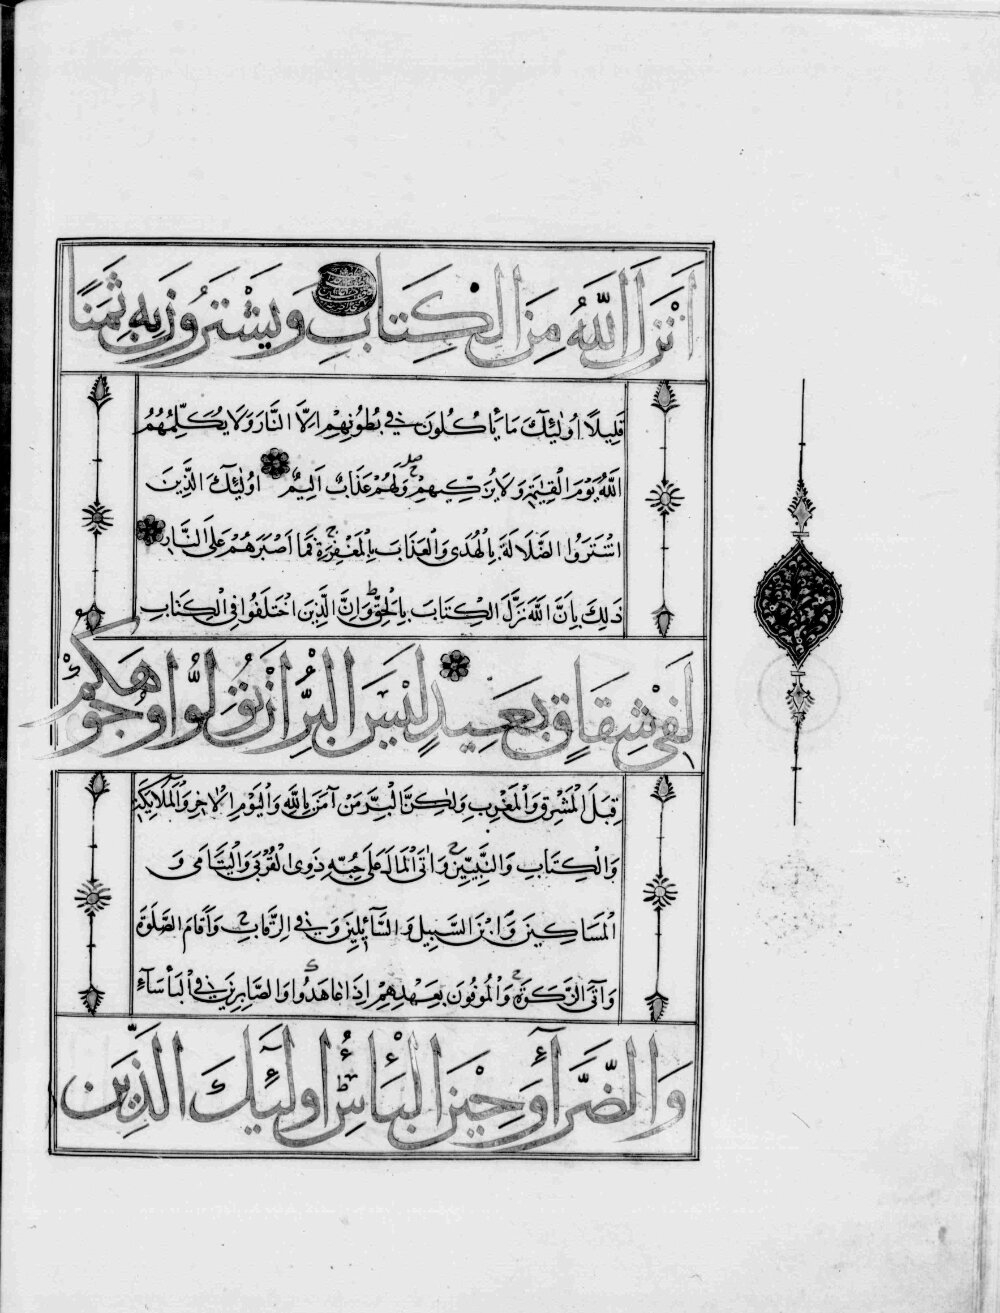 اَنْزَلَ اللّٰهُ مِنَ الْكِتَابِ وَيَشْتَرُونَ بِهِ ثَمَنًا
قَلِيلًا اُولٰئِكَ مَا يَأْكُلُونَ فِي بُطُونِهِمْ اِلَّا النَّارَ وَلَا يُكَلِّمُهُمُ
اللّٰهُ يَوْمَ الْقِيٰمَةِ وَلَا يُزَكِّيهِمْ وَلَهُمْ عَذَابٌ اَلِيمٌ اُولٰئِكَ الَّذِينَ
اشْتَرَوُا الضَّلَالَةَ بِالْهُدَى وَالْعَذَابَ بِالْمَغْفِرَةِ فَمَا اَصْبَرَهُمْ عَلَى النَّارِ
ذٰلِكَ بِاَنَّ اللّٰهَ نَزَّلَ الْكِتَابَ بِالْحَقِّ وَاِنَّ الَّذِينَ اخْتَلَفُوا فِي الْكِتَابِ
لَفِي شِقَاقٍ بَعِيدٍ لَيْسَ الْبِرَّ اَنْ تُوَلُّوا وُجُوهَكُمْ
قِبَلَ الْمَشْرِقِ وَالْمَغْرِبِ وَلٰكِنَّ الْبِرَّ مَنْ آمَنَ بِاللّٰهِ وَالْيَوْمِ الْاٰخِرِ وَالْمَلَايِكَةِ
وَالْكِتَابِ وَالنَّبِيِّينَ وَاٰتَى الْمَالَ عَلَى حُبِّهِ ذَوِي الْقُرْبَى وَالْيَتَامَى وَ
الْمَسَاكِينَ وَابْنَ السَّبِيلِ وَالسَّآئِلِينَ وَفِي الرِّقَابِ وَاَقَامَ الصَّلٰوةَ
وَاٰتَى الزَّكٰوةَ وَالْمُوفُونَ بِعَهْدِهِمْ اِذَا عَاهَدُوا وَالصَّابِرِينَ فِي الْبَأْسَآءِ
وَالضَّرَّآءِ وَحِينَ الْبَأْسِ اُولٰئِكَ الَّذِينَ